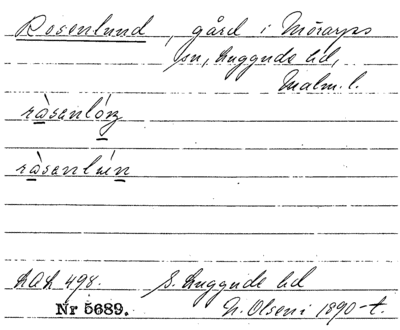 Rosenlund, gård i Mörarps
sn, Luggude hd,
Malm. l.
ràsenlóŋ
ràsenlún
LAL 498. S. Luggude hd
Nr 5689. N. Olseni 1890-t.